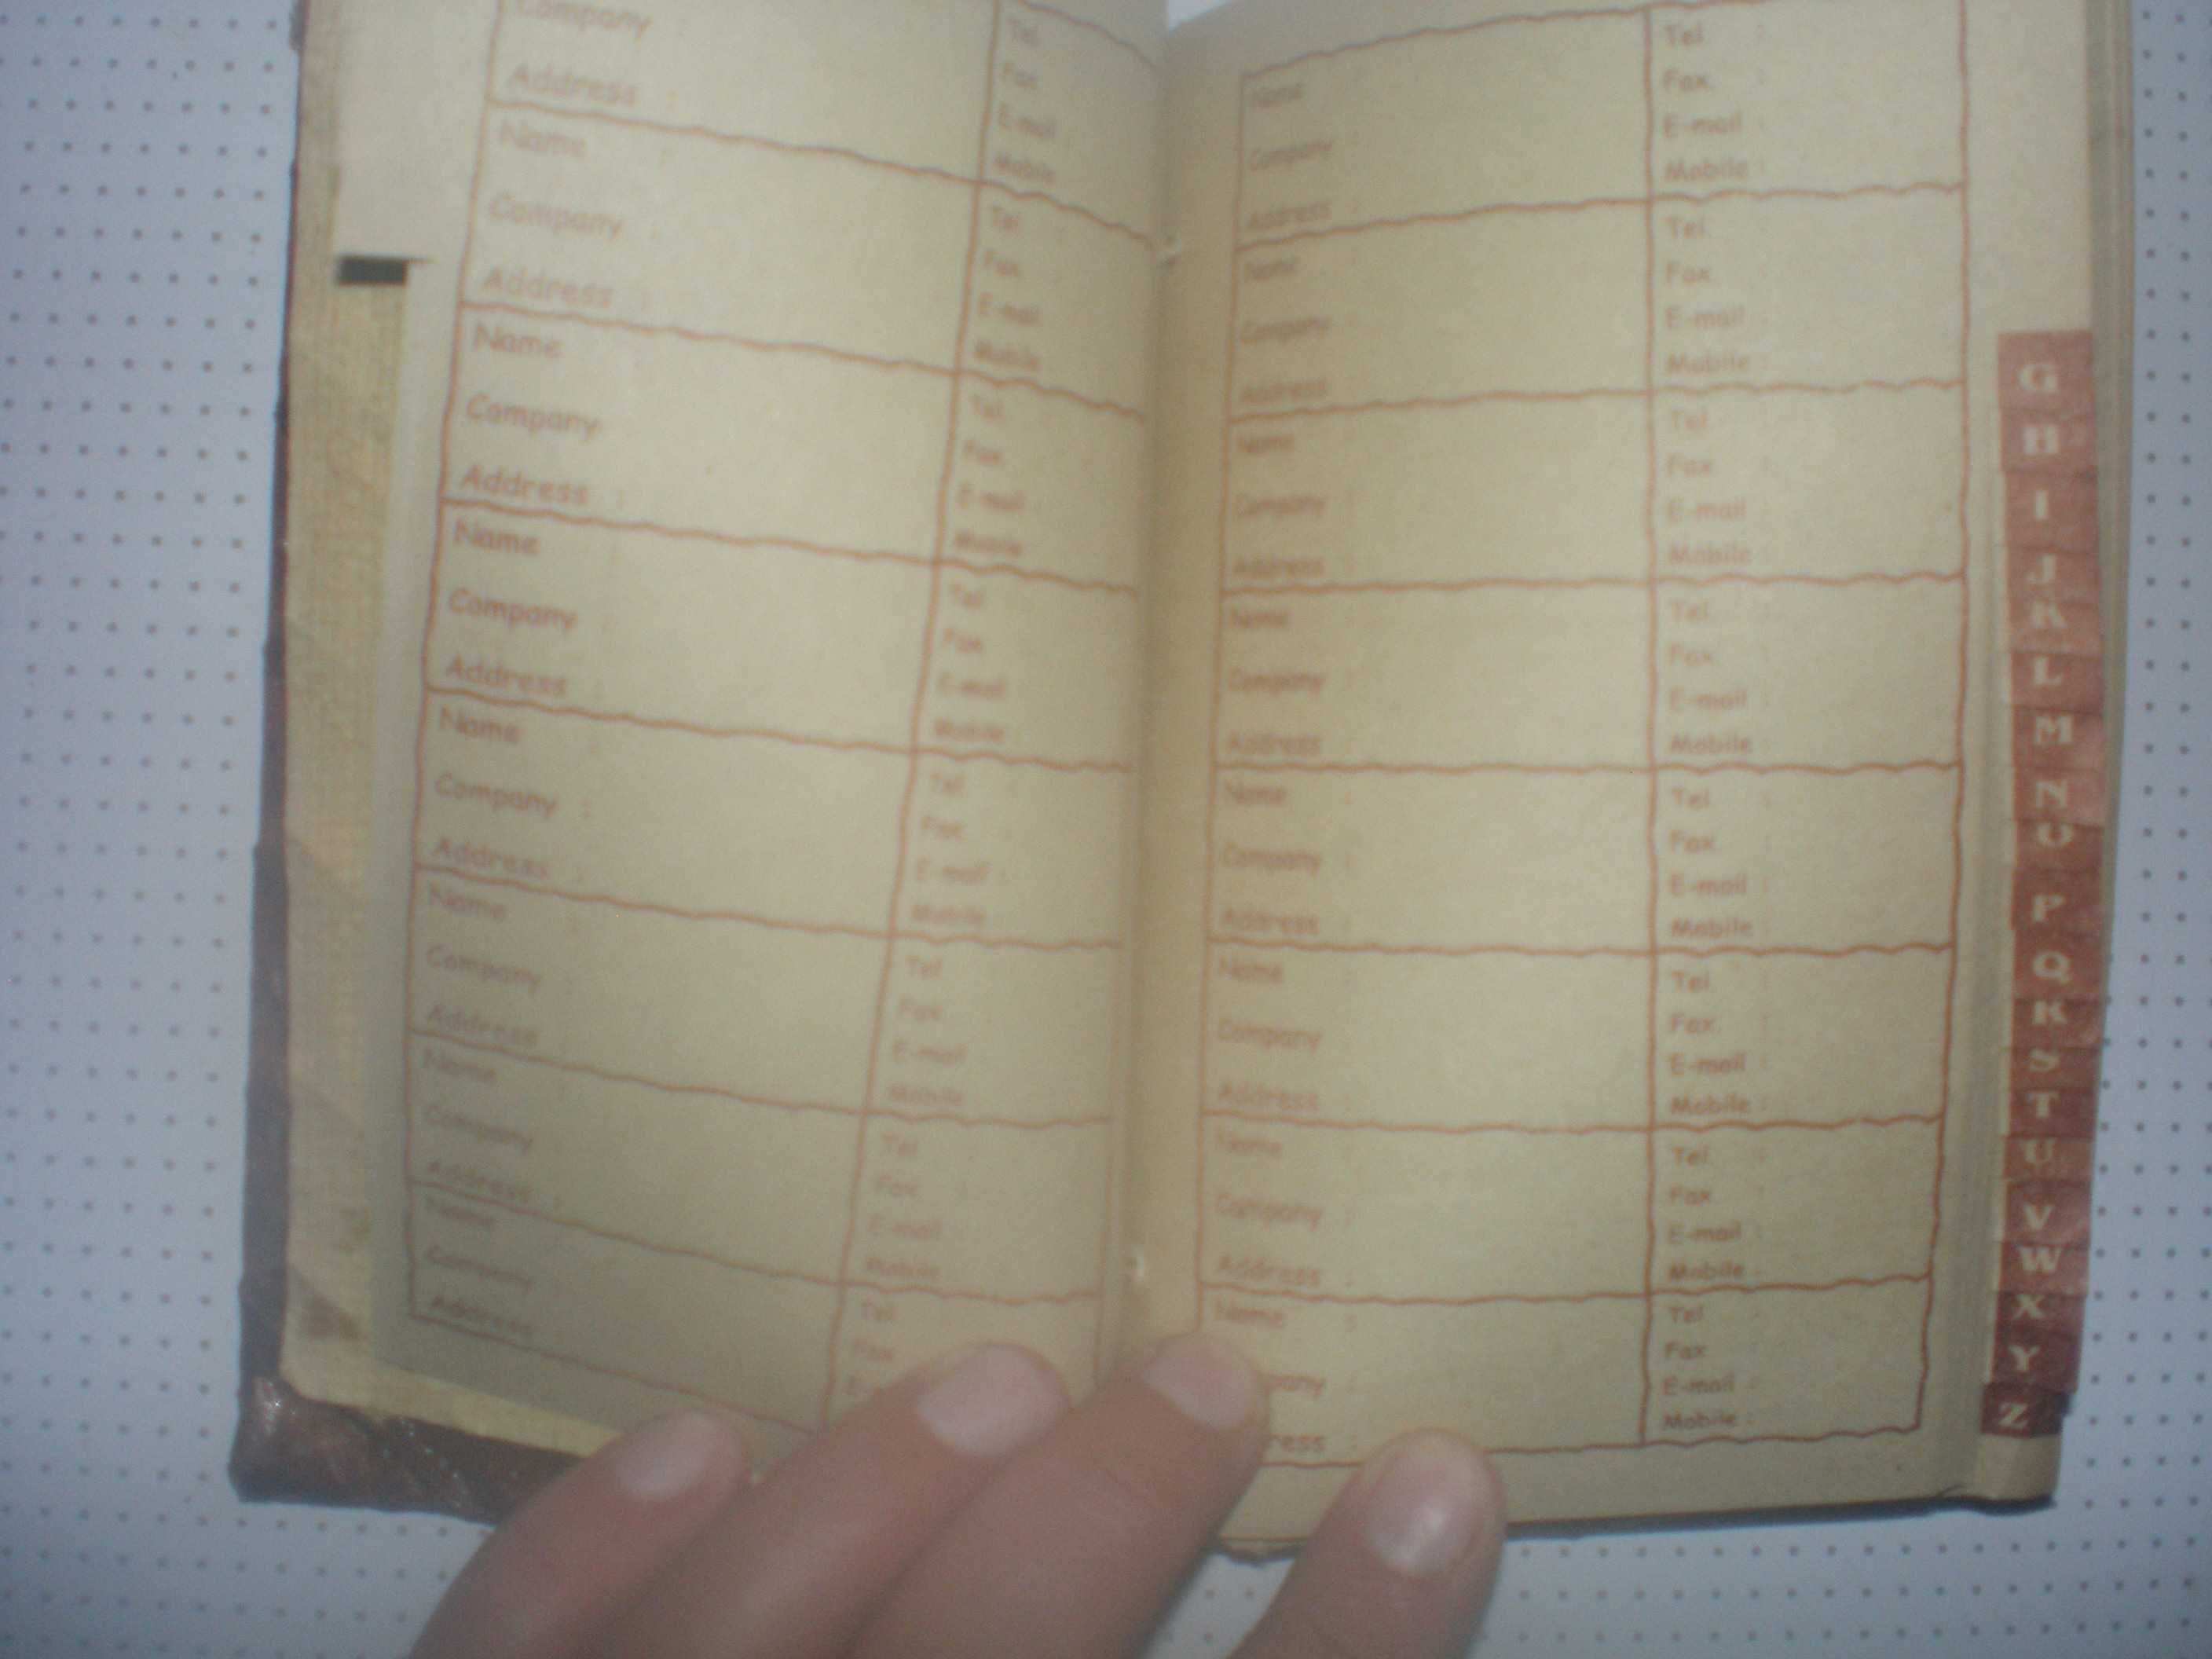 Company :
Address :
Tel.
Fax.
E-mail
Mobile
Name
Company :
Address :
Tel.
Fax.
E-mail
Mobile
Name
Company :
Address :
Tel.
Fax.
E-mail
Mobile
Name
Company :
Address :
Tel.
Fax.
E-mail
Mobile
Name :
Company :
Address :
Tel.
Fax.
E-mail :
Mobile
Name
Company :
Address :
Tel.
Fax.
E-mail
Mobile
Name
Company :
Address :
Tel.
Fax.
E-mail
Mobile
Name
Company :
Address :
Tel.
Fax.
Name
Company :
Address :
Tel. :
Fax. :
E-mail :
Mobile :
Name
Company :
Address :
Tel. :
Fax. :
E-mail :
Mobile :
Name :
Company :
Address :
Tel. :
Fax. :
E-mail :
Mobile :
Name :
Company :
Address :
Tel. :
Fax. :
E-mail :
Mobile :
Name :
Company :
Address :
Tel. :
Fax. :
E-mail :
Mobile :
Name :
Company :
Address :
Tel. :
Fax. :
E-mail :
Mobile :
Name :
Company :
Address :
Tel. :
Fax. :
E-mail :
Mobile :
Name :
pany :
ress :
Tel. :
Fax :
E-mail :
Mobile :
G
H
I
J
K
L
M
N
O
P
Q
R
S
T
U
V
W
X
Y
Z